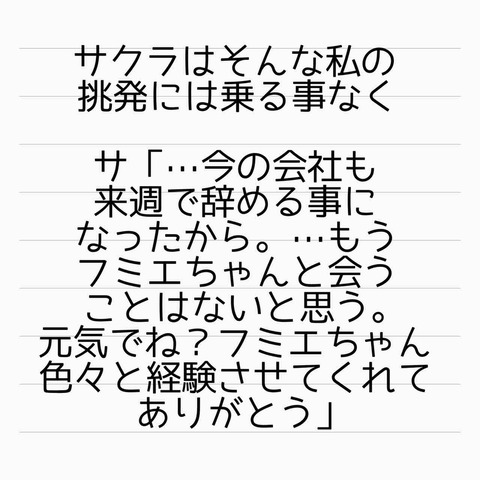 サクラはそんな私の
挑発には乗る事なく
サ「…今の会社も
来週で辞める事に
なったから。…もう
フミエちゃんと会う
ことはないと思う。
元気でね？フミエちゃん
色々と経験させてくれて
ありがとう」